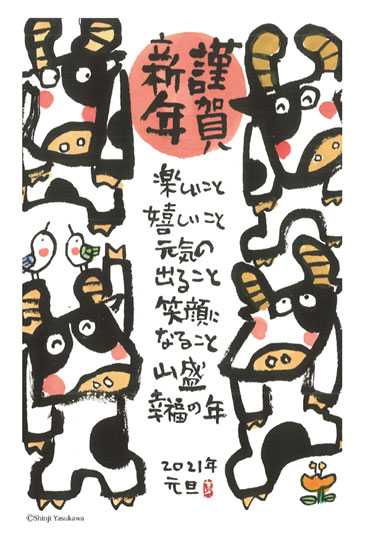 謹賀
新年
楽しいこと
嬉しいこと
元気の
出ること
笑顔に
なること
山盛
幸福の年
2021年
元旦
©Shinji Yasukawa